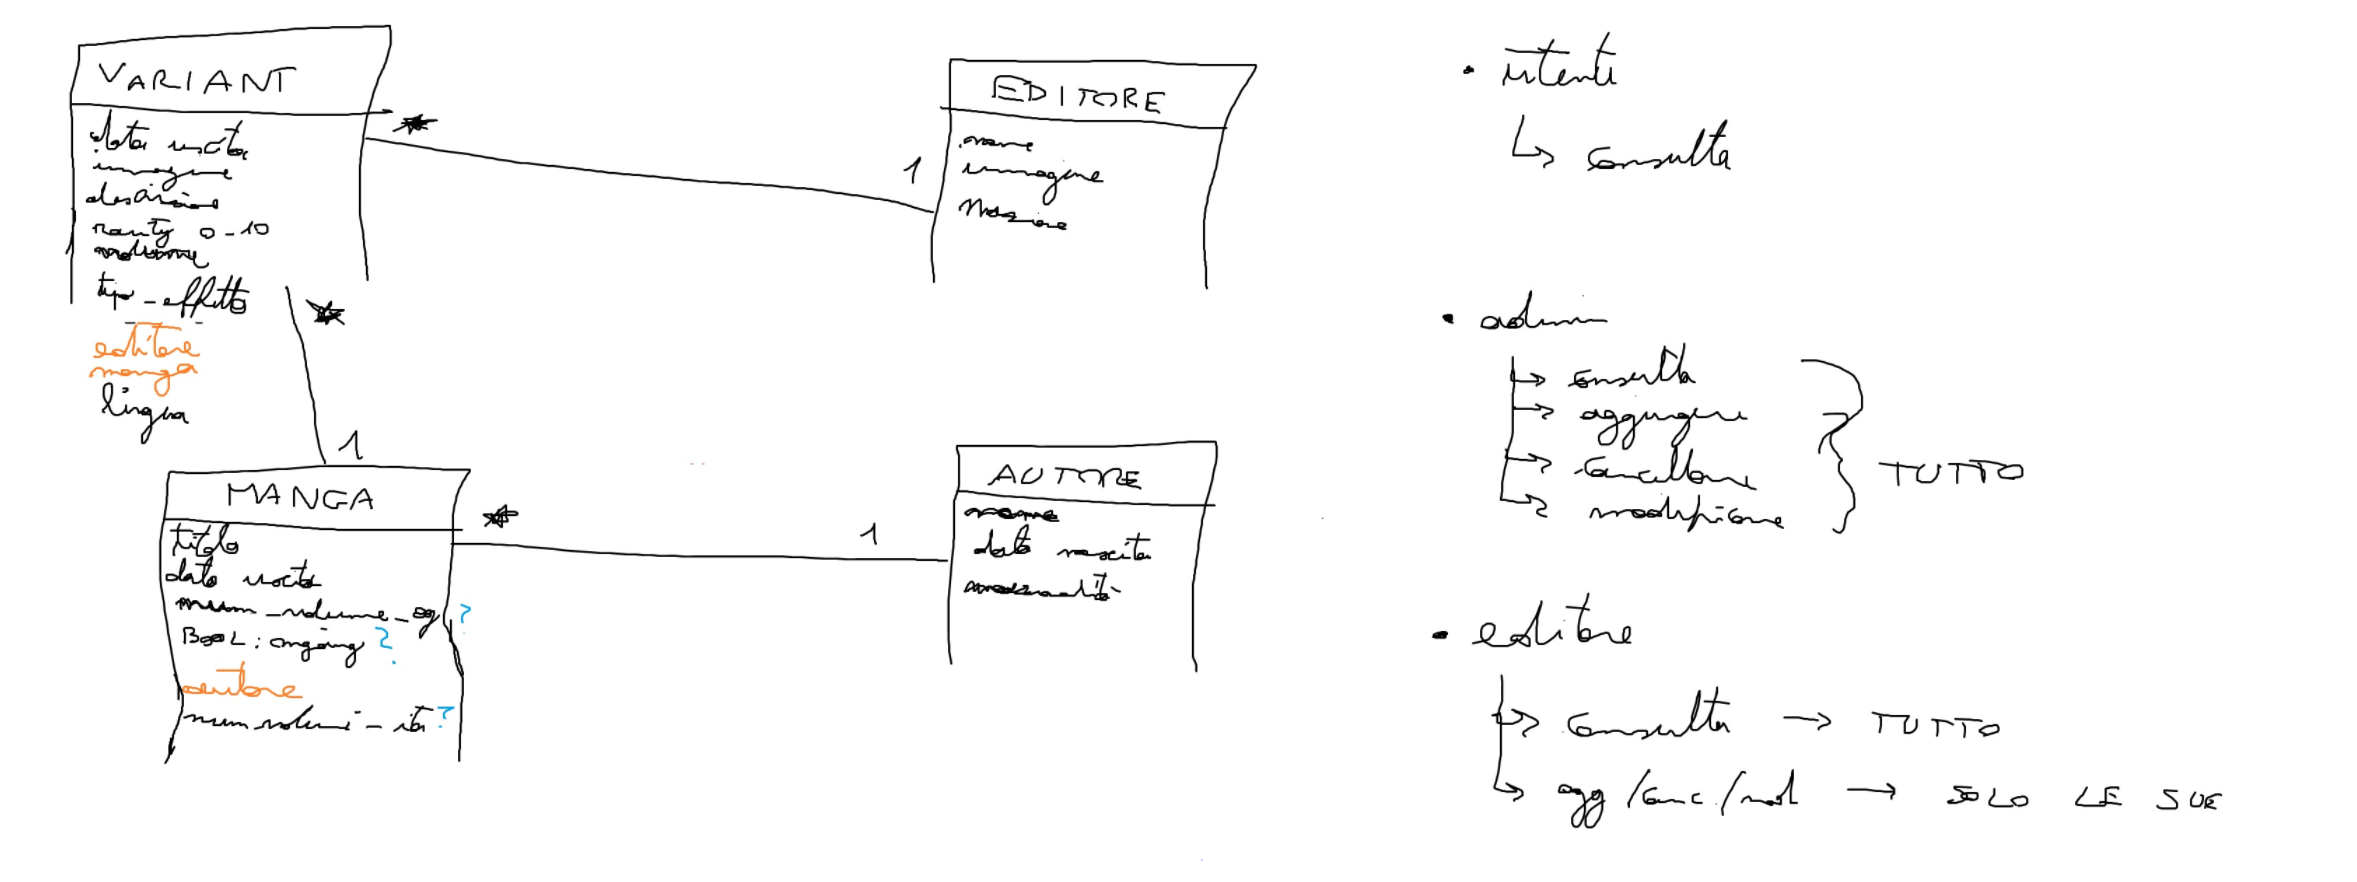 VARIANT
data uscita
immagine
descrizione
rarity 0-10
volume
tipo_effetto
editore
manga
lingua
*
1
EDITORE
nome
immagine
Nazione
*
1
MANGA
titolo
data uscita
num_volume_og ?
BOOL: ongoing ?
autore
num volumi_ita ?
*
1
AUTORE
nome
data nascita
nazionalità
• utenti
↳ consulta
• admin
→ consulta
→ aggiungere
→ cancellare
→ modificare
} TUTTO
• editore
→ consulta → TUTTO
↳ agg/canc./mod → SOLO LE SUE